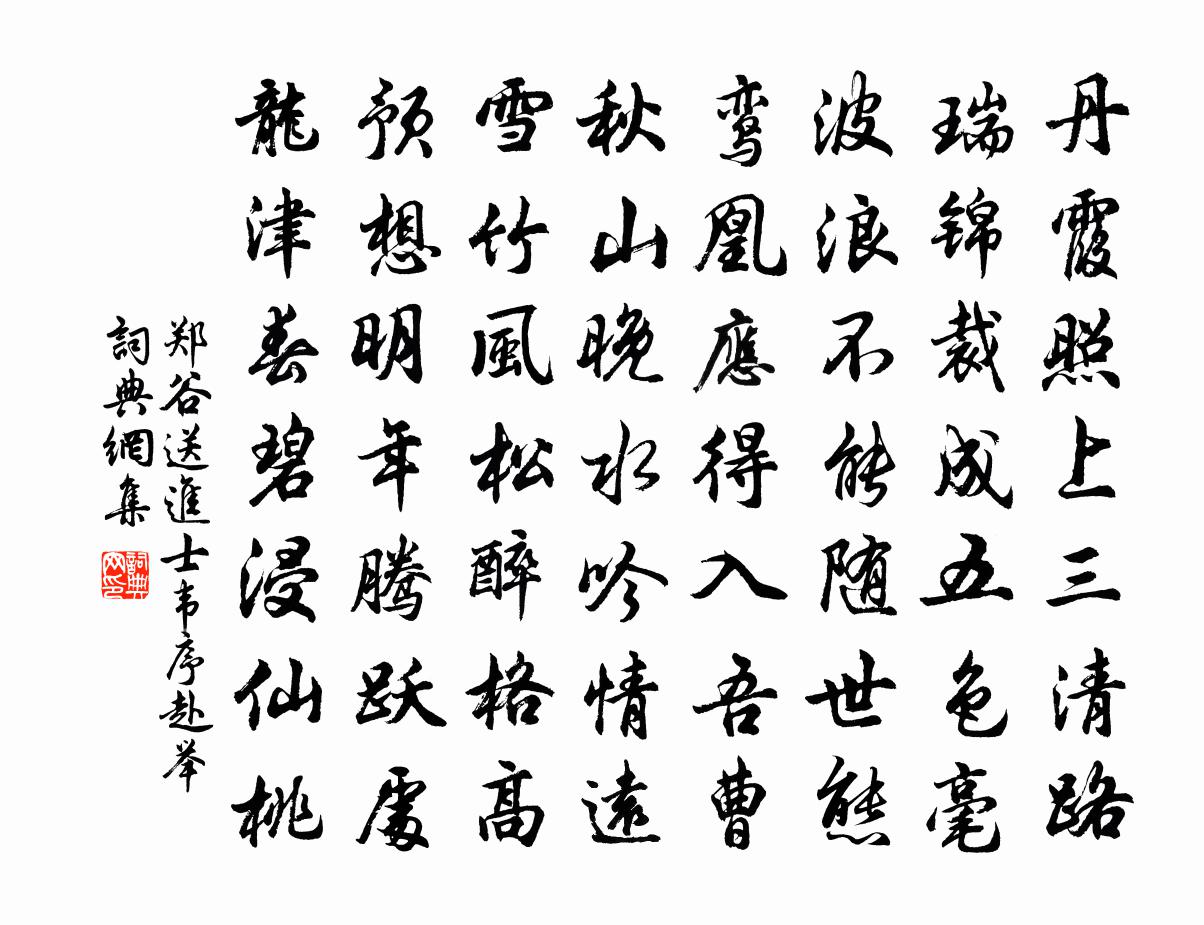 丹霞照上三清路
瑞锦裁成五色毫
波浪不能随世态
鸾凰應得入吾曹
秋山晚水吟情遠
雪竹風松醉格高
预想明年腾跃處
龍津春碧浸仙桃
郑谷送進士韦序赴举
詞典網集